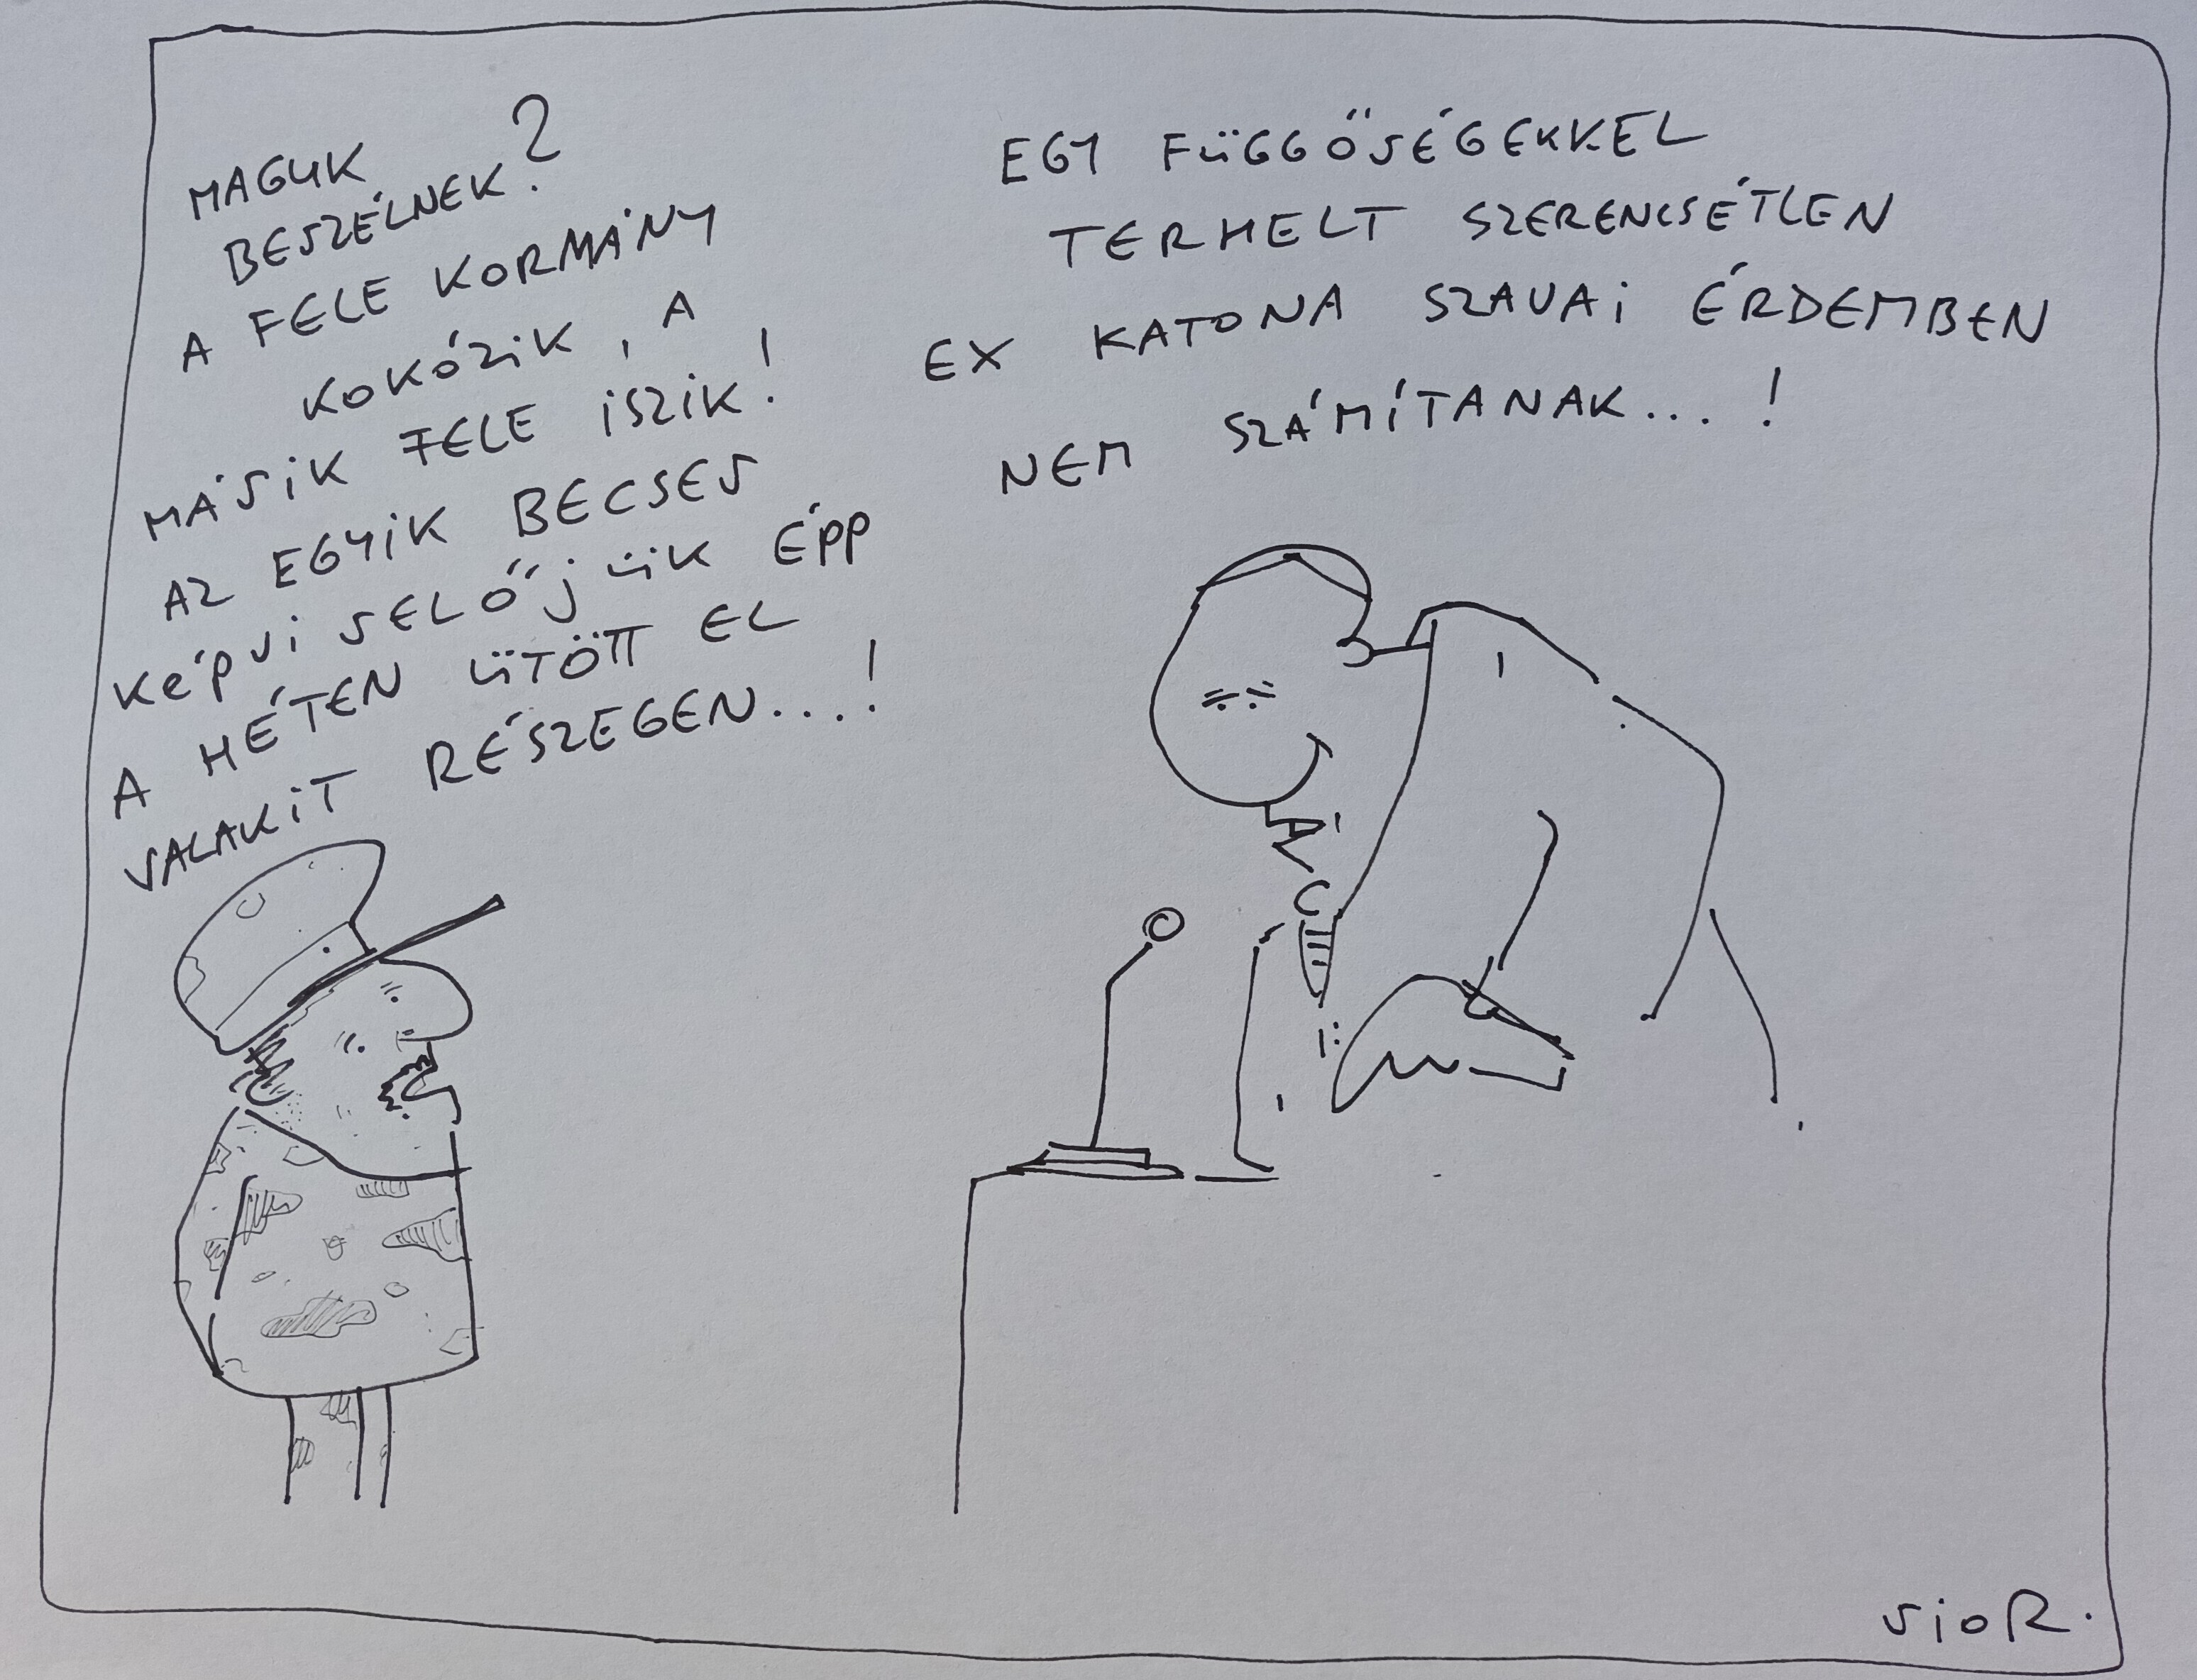 MAGUK
BESZÉLNEK?
A FELE KORMÁNY
KOKÓZIK, A
MÁSIK FELE ISZIK!
AZ EGYIK BECSES
KÉPVISELŐJÜK ÉPP
A HÉTEN ÜTÖTT EL
VALAKIT RÉSZEGEN....!
EGY FÜGGŐSÉGEKKEL
TERHELT SZERENCSÉTLEN
EX KATONA SZAVAI ÉRDEMBEN
NEM SZÁMÍTANAK...!
SIOR.